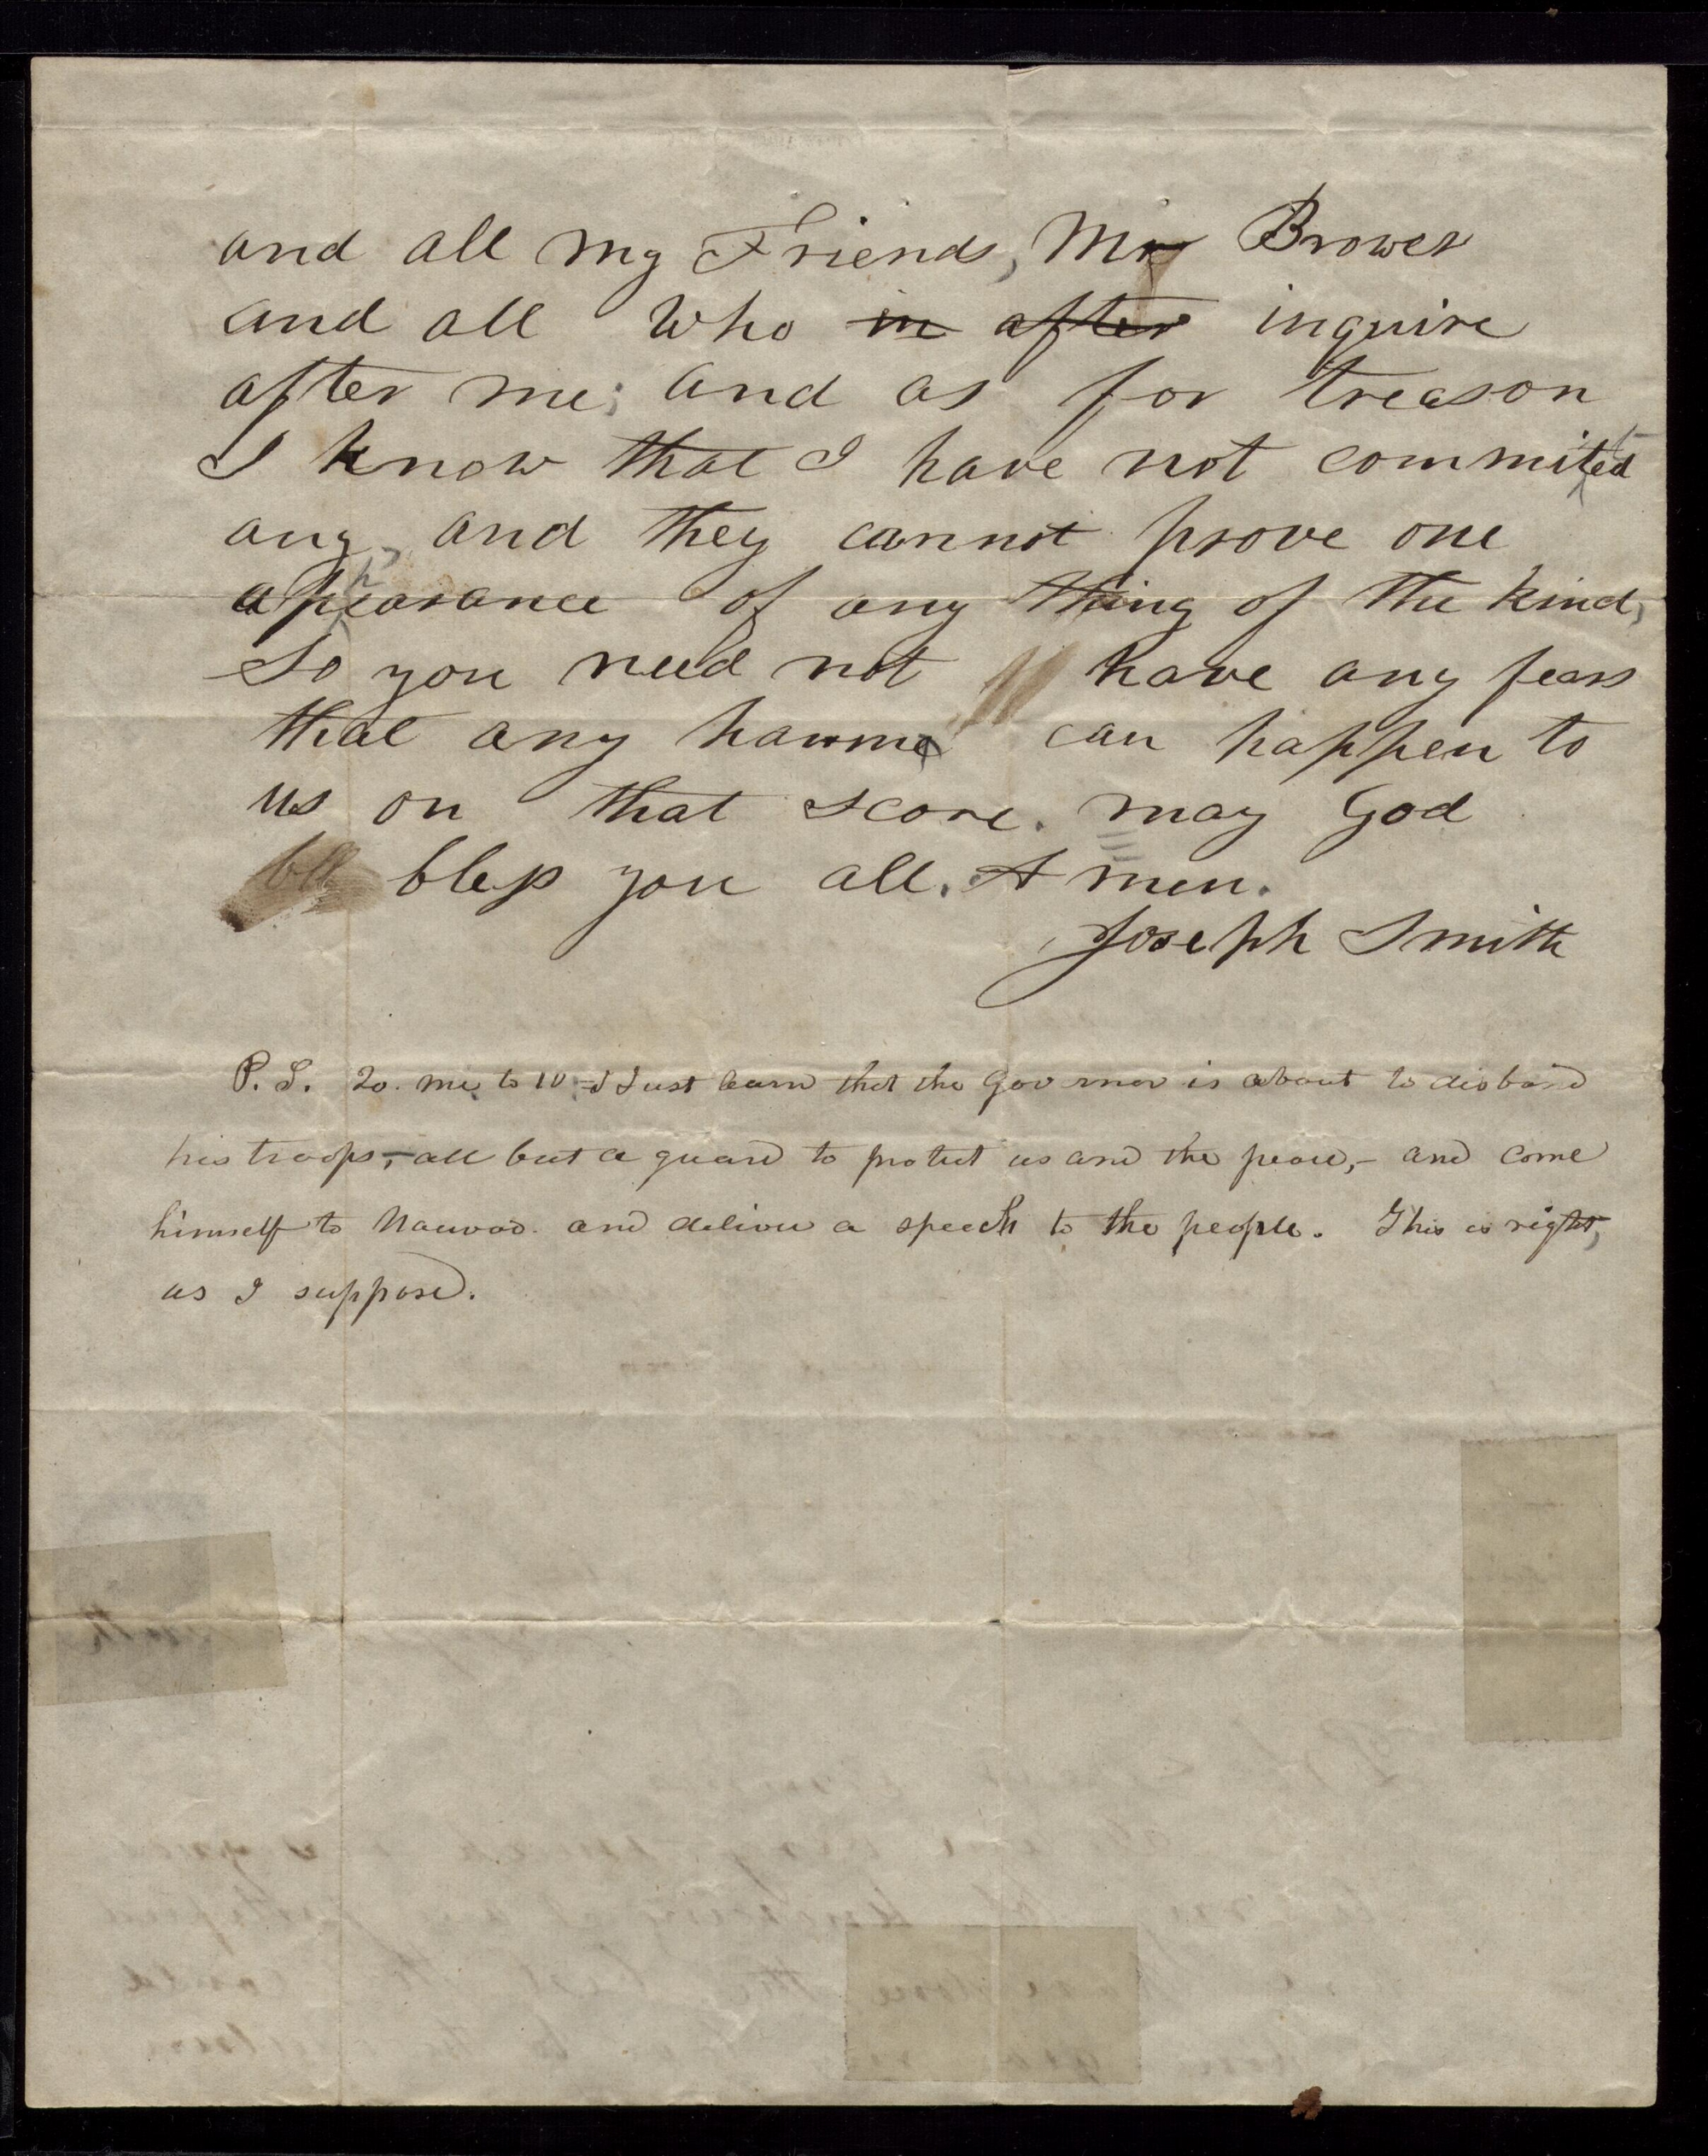 and all my Friends, Mr Brower
and all who in after inquire
after me; and as for treason
I know that I have not commited
any, and they cannot prove one
apearance of any thing of the kind,
So you need not have any fears
that any harme can happen to
us on that score. may God
bless you all. Amen.
Joseph Smith
P. S. 20. mi, to 10 - I Just learn that the Governor is about to disband
his troops, - all but a guard to protect us and the peace, - and come
himself to Nauvoo. and deliver a speech to the people. This is right,
as I suppose.